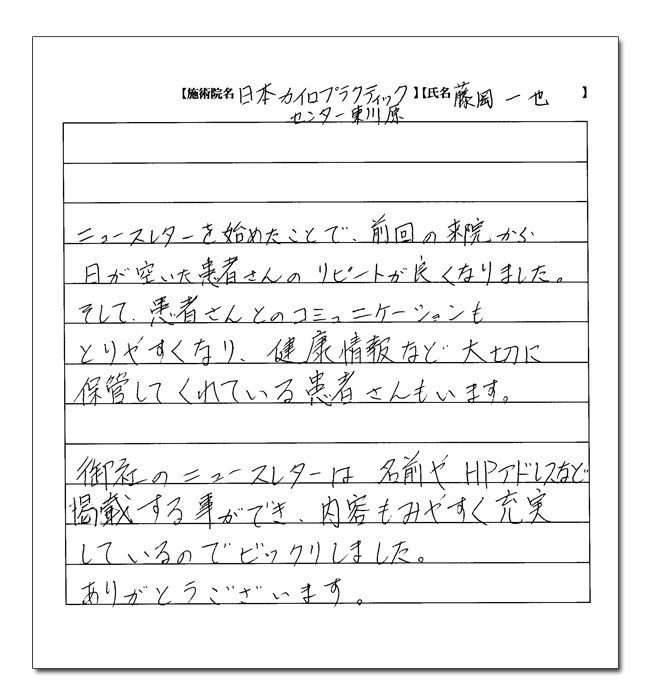 【施術院名 日本カイロプラクティック 】【氏名 藤岡 一也 】
センター東川原
ニュースレターを始めたことで、前回の来院から
日が空いた患者さんのリピートが良くなりました。
そして、患者さんとのコミュニケーションも
とりやすくなり、健康情報など大切に
保管してくれている患者さんもいます。
御社のニュースレターは 名前や HPアドレスなど
掲載する事ができ、内容もみやすく充実
しているのでビックリしました。
ありがとうございます。